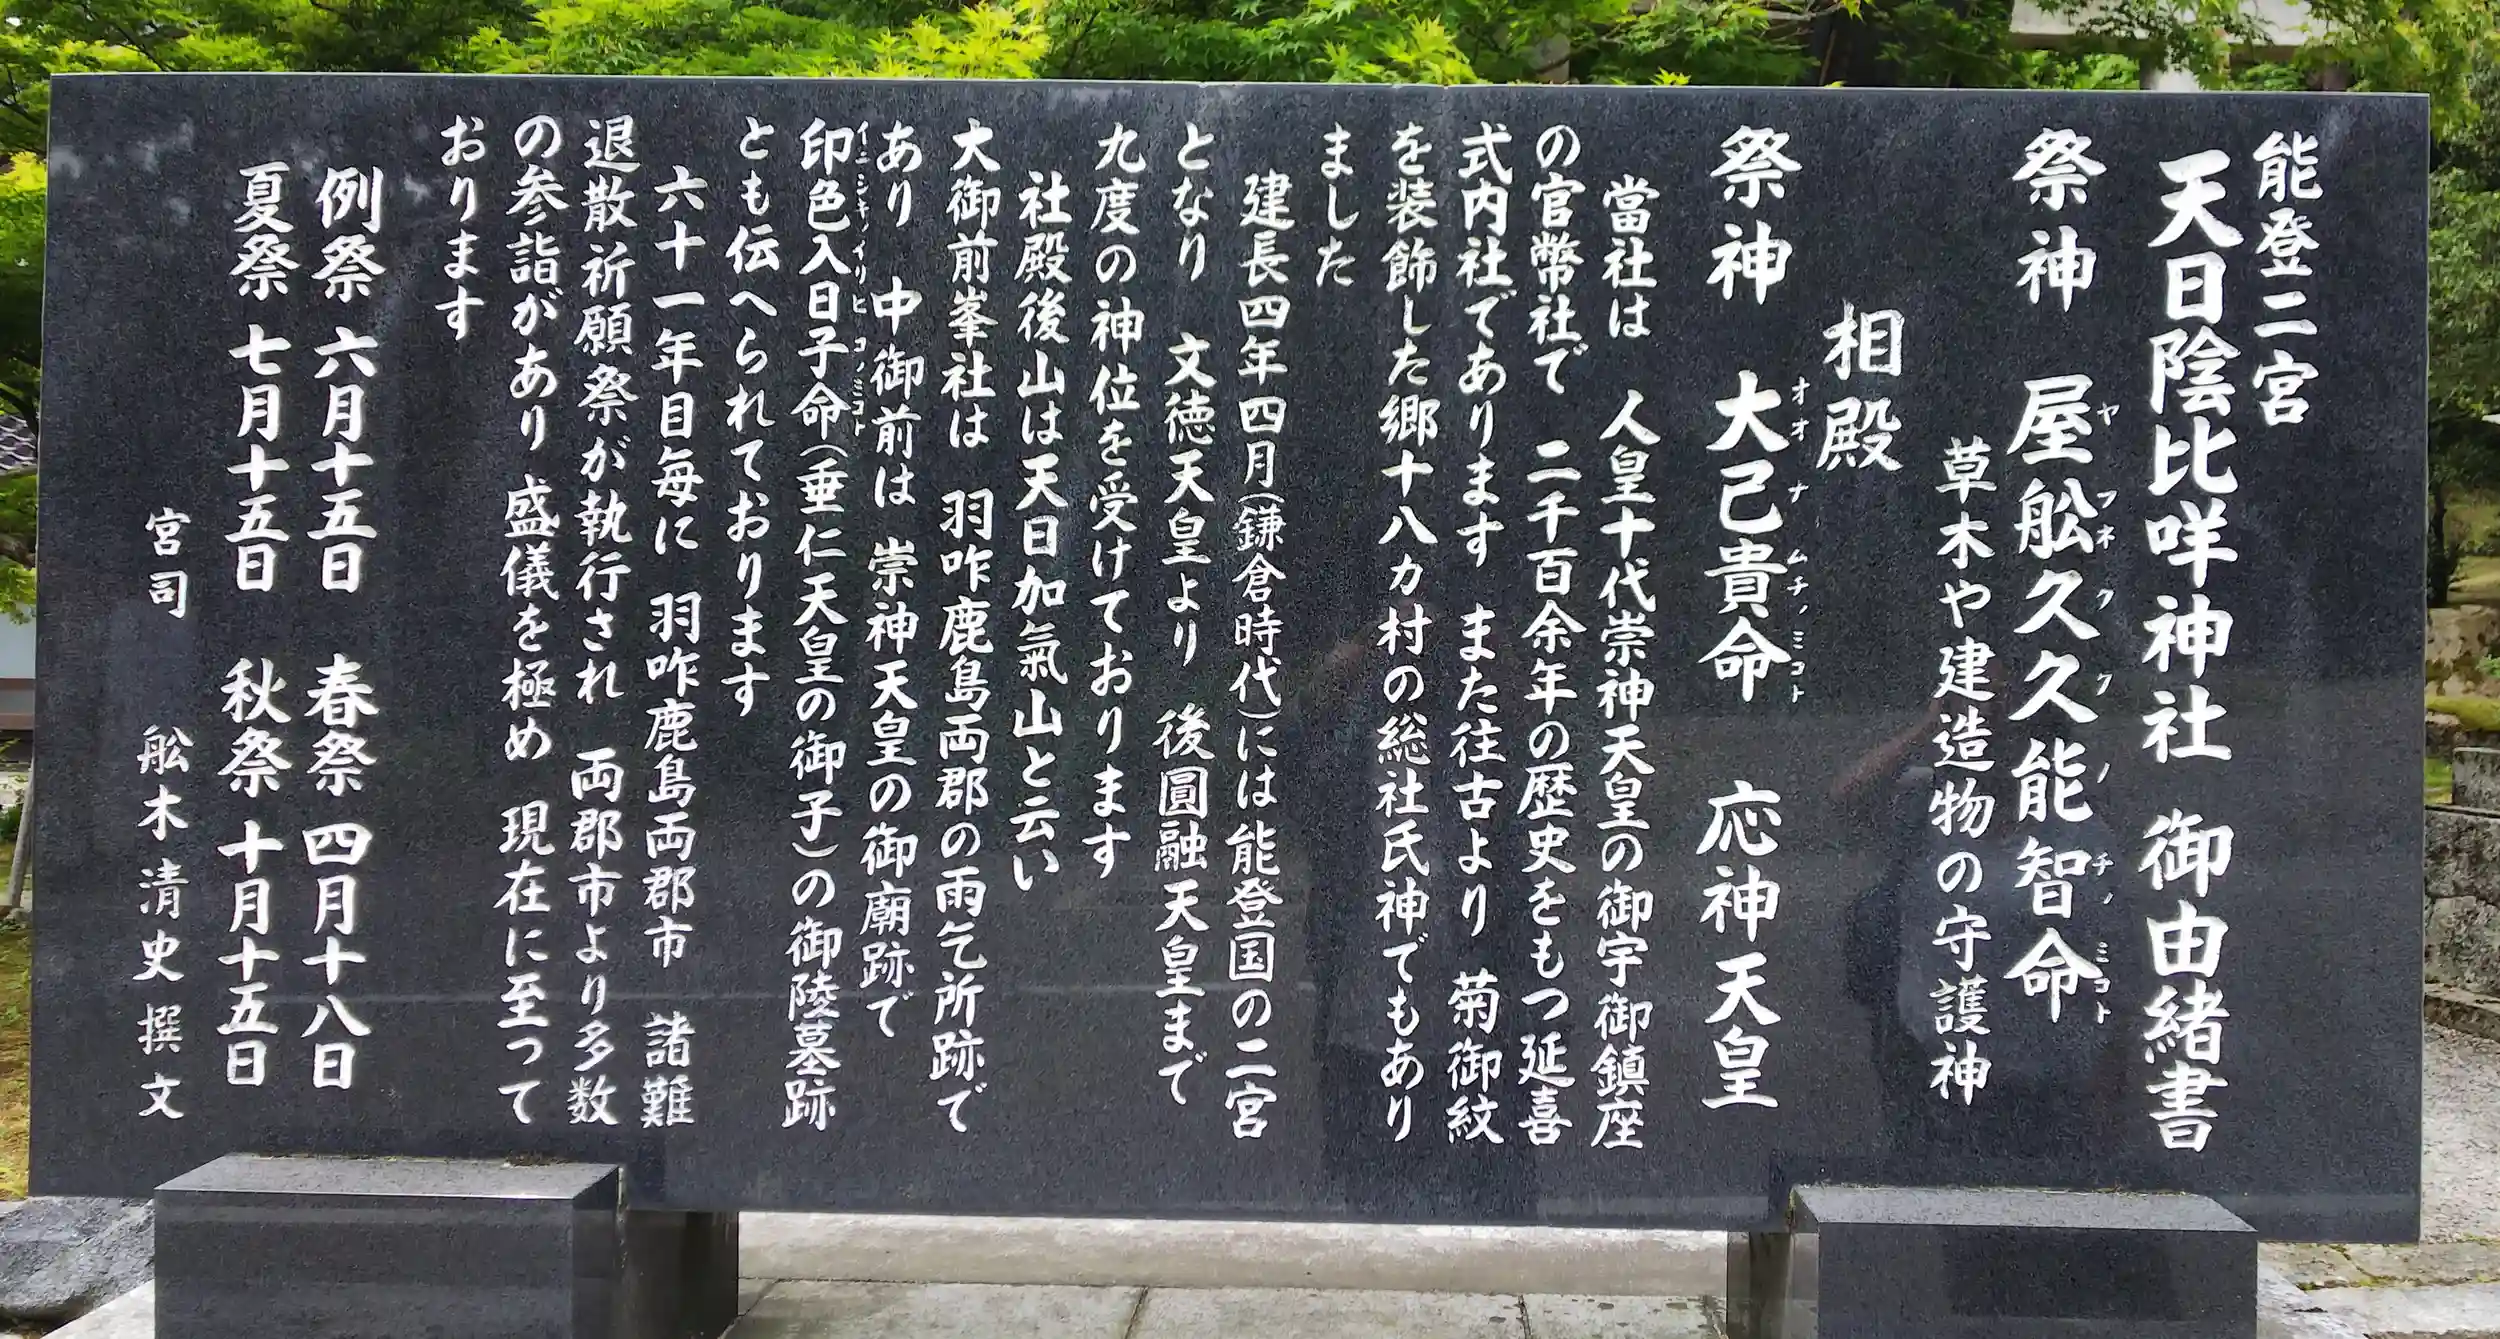 能登二宮
天日陰比咩神社 御由緒書
祭神 屋舩久久能智命
ヤフネククノチノミコト
草木や建造物の守護神
相殿
祭神 大己貴命 応神天皇
オオナムチノミコト
當社は 人皇十代崇神天皇の御宇御鎮座
の官幣社で 二千百余年の歴史をもつ延喜
式内社であります また往古より 菊御紋
を装飾した郷十八カ村の総社氏神でもあり
ました
建長四年四月(鎌倉時代)には能登国の二宮
となり 文徳天皇より 後圓融天皇まで
九度の神位を受けております
社殿後山は天日加氣山と云い
大御前峯社は 羽咋鹿島両郡の雨乞所跡で
あり 中御前は 崇神天皇の御廟跡で
イニシキノイリヒコノミコト
印色入日子命(垂仁天皇の御子)の御陵墓跡
とも伝へられております
六十一年目毎に 羽咋鹿島両郡市 諸難
退散祈願祭が執行され 両郡市より多数
の参詣があり 盛儀を極め 現在に至って
おります
例祭 六月十五日 春祭 四月十八日
夏祭 七月十五日 秋祭 十月十五日
宮司 舩木清史撰文